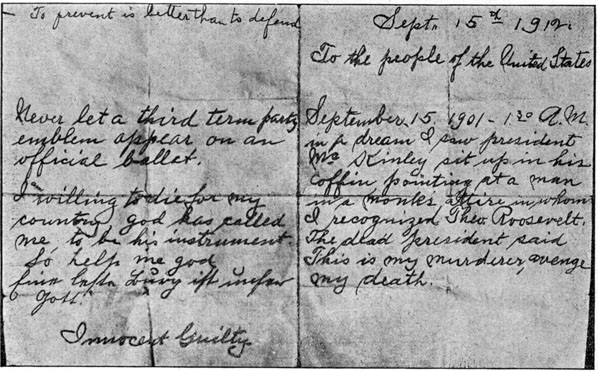 — To prevent is better than to defend
Never let a third term party
emblem appear on an
official ballet.
I willing to die for my
country, god has called
me to be his instrument
So help me god
Eine feste Burg ist unser
Gott."
Innocent Guilty
Sept. 15th 1912.
To the people of the United States
September 15, 1901 – 1 30 A.M.
in a dream I saw president
Mc Kinley sit up in his
coffin pointing at a man
in a monks attire in whom
I recognized Theo. Roosevelt.
The dead president said
This is my murderer, avenge
my death.